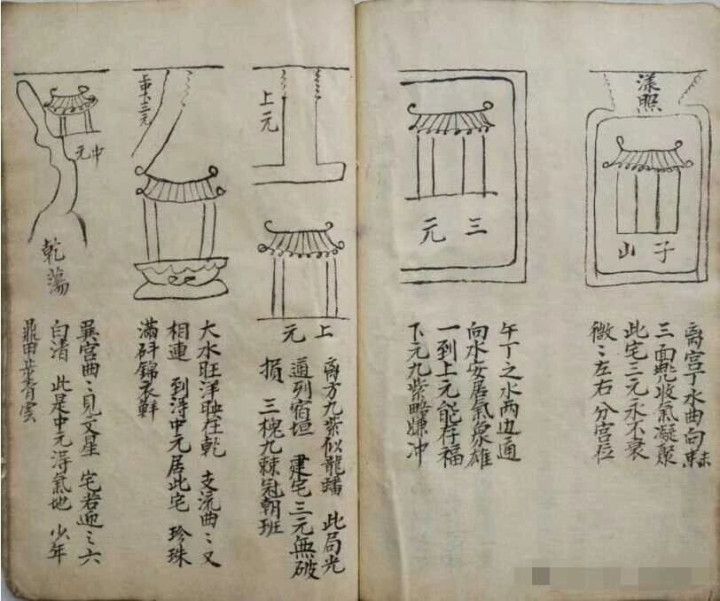 漾照
子山
离宫丁水曲向
三面兜收氣凝聚
此宅三元永不衰
微〻左右分宫位
三元
午丁之水两边通
向水安居氣象雄
一到上元能存福
下元九紫略嫌冲
上元
上元
离方九紫似龍蟠 此局光
通列宿垣 建宅三元無破
损 三槐九棘冠朝班
三元
大水旺洋 在乾 支流曲〻又
相連 到得中元居此宅 珍珠
满斛錦衣軒
中元
乾蕩
巽宫曲〻見文星 宅若迎〻六
白清 此是中元得氣地 少年
鼎甲步青雲